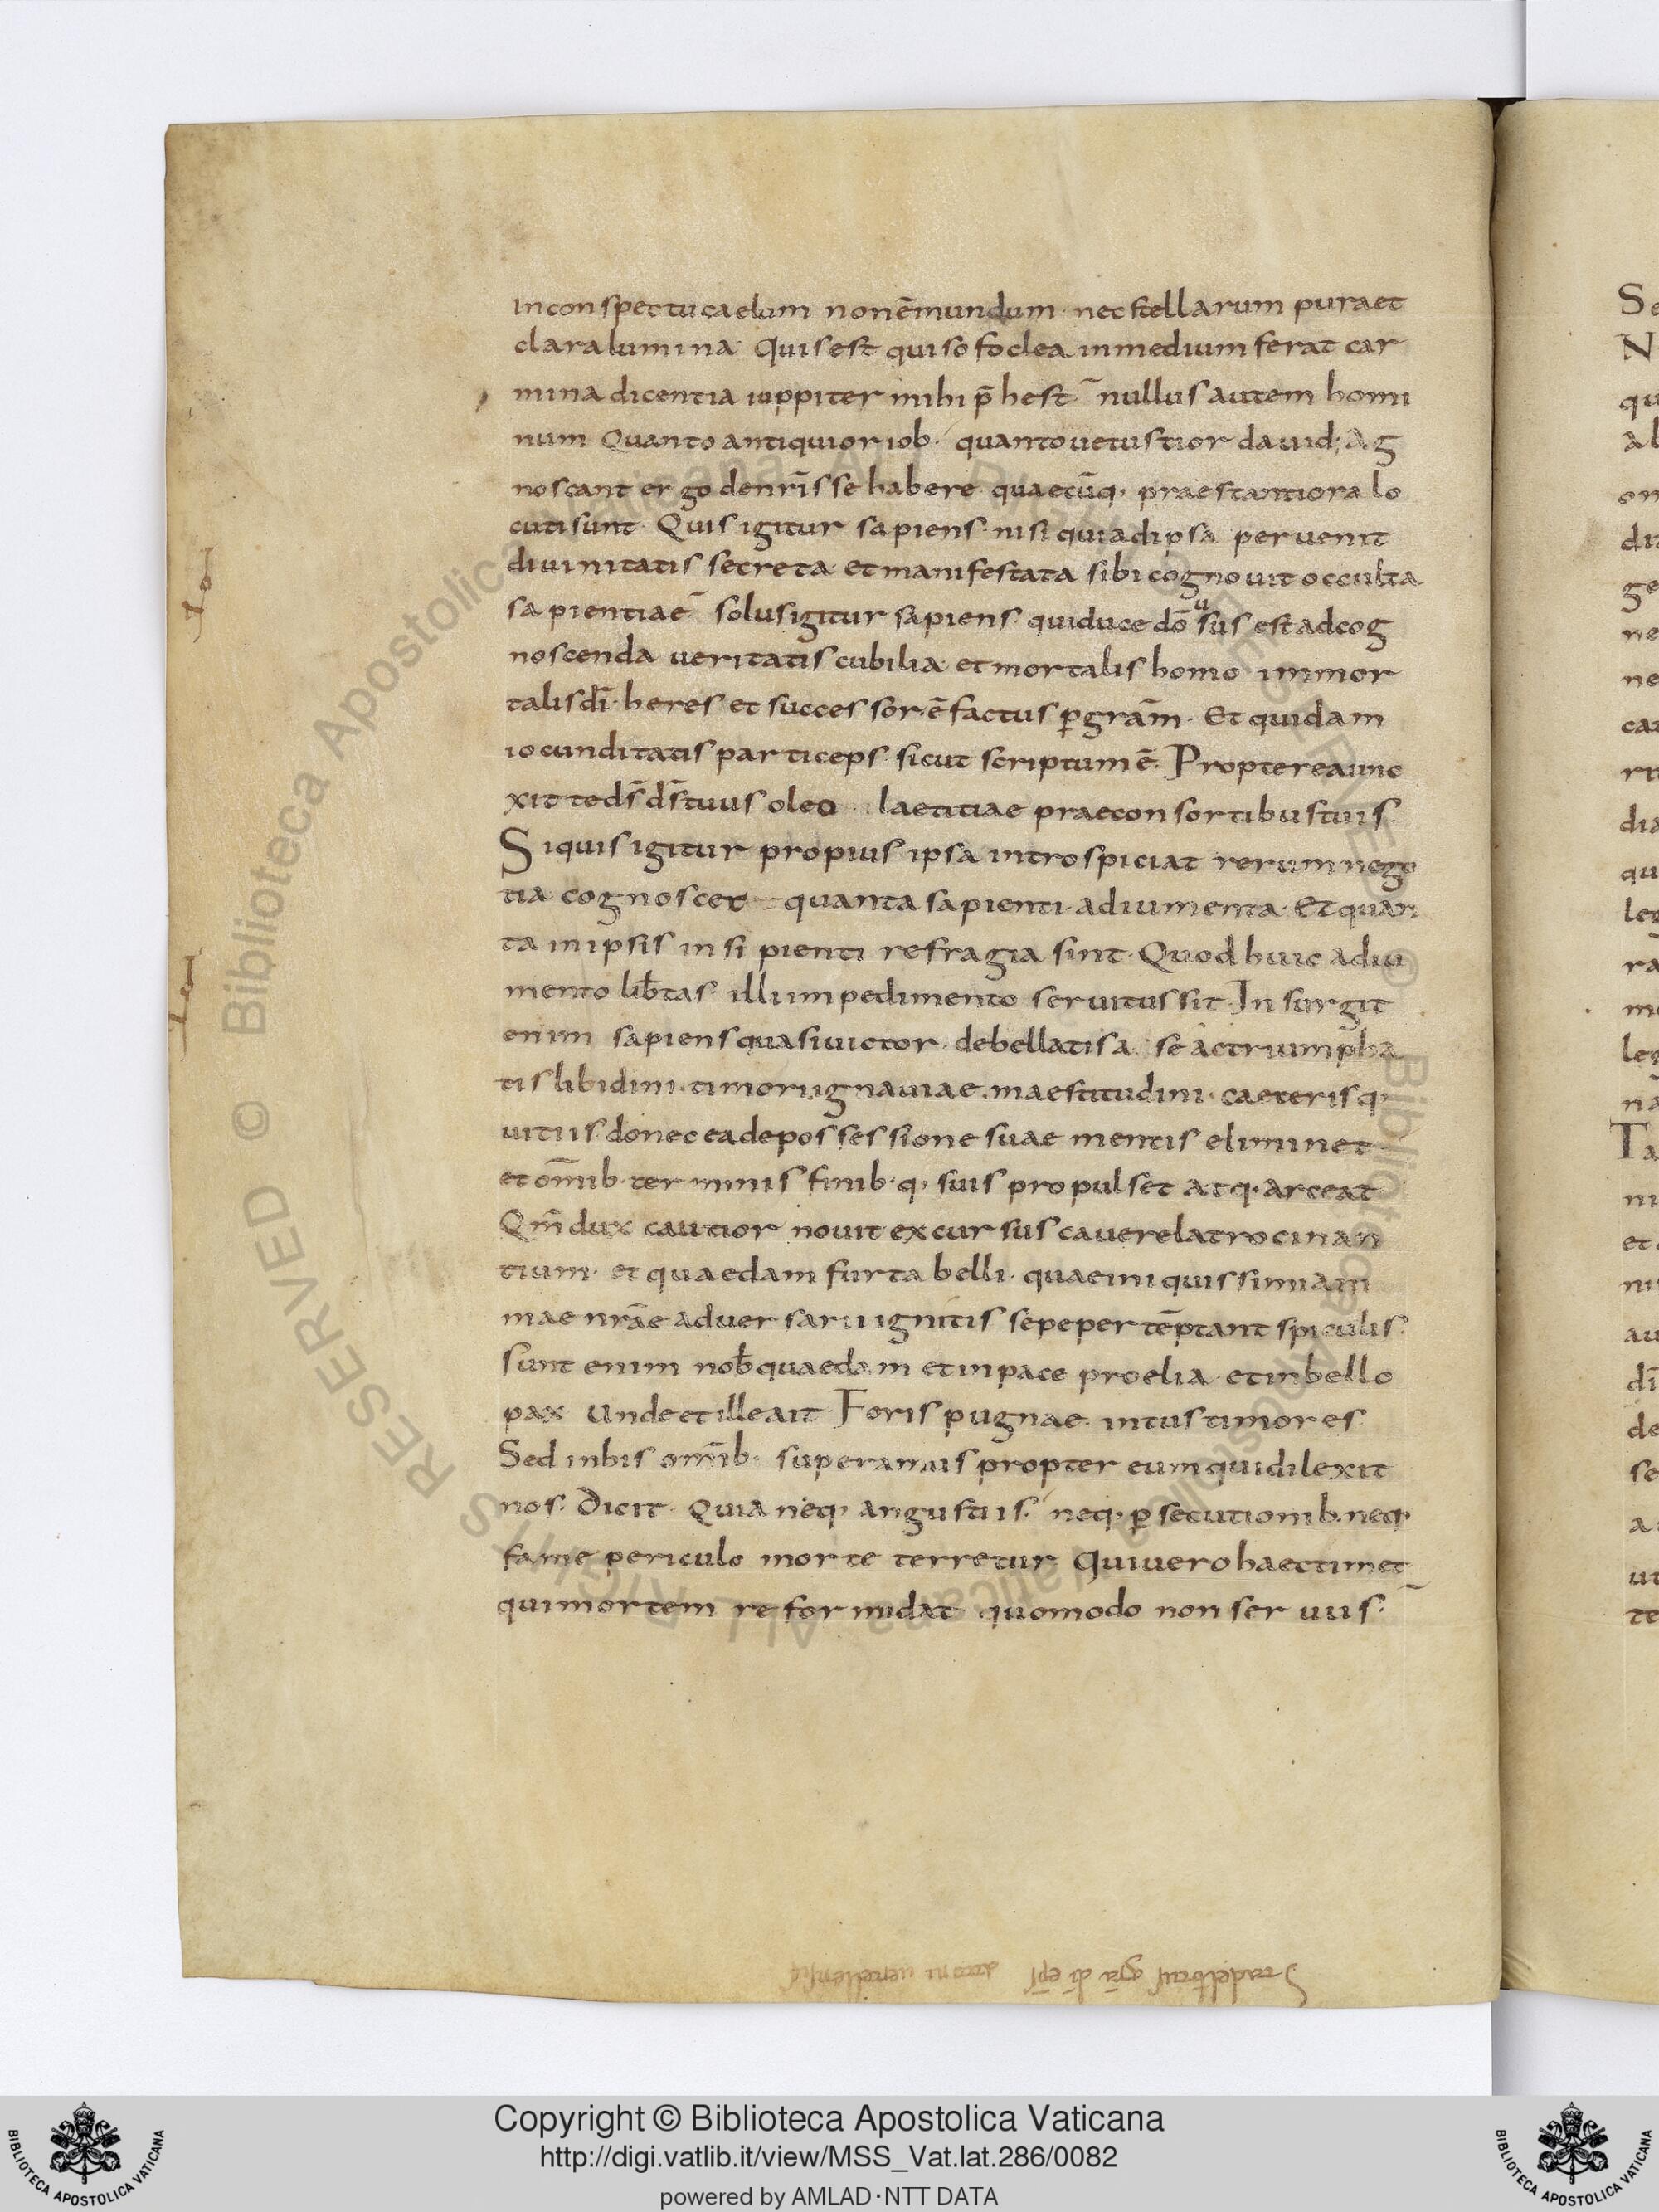 in conspectu caelum non ē mundum · nec stellarum pura et
clara lumina Quis est qui sofoclea in medium ferat car
mina dicentia iuppiter mihi p̄hest nullus autem homi
num Quanto antiquior iob · quanto uetustior dauid ; Ag
noscant ergo de nr̄is se habere quaecūq; praestantiora lo
cuti sunt · Quis igitur sapiens · nisi qui ad ipsa peruenit
diuinitatis secreta et manifestata sibi cognouit occulta
sapientiae solus igitur sapiens qui duce dō usus est ad cog
noscenda ueritatis cubilia et mortalis homo immor
talis dī · heres et successor ē factus p gr̄am · Et quidam
iocunditatis particeps sicut scriptum ē · Propterea unc
xit te ds̄ ds̄ tuus oleo laetitiae prae consortibus tuis ·
Si quis igitur propius ipsa introspiciat rerum nego
tia cognoscet quanta sapienti adiumenta · Et quan
ta in ipsis insipienti refragia sint · Quod huic adiu
mento lib̄tas illi impedimento seruitus sit · Insurgit
enim sapiens quasi uictor debellatis a se ac triumpha
tis libidini · timori ignauiae · maestitudini · caeterisq;
uitiis donec ea de possessione suae mentis eliminet
et om̄ib · terminis finib · q; suis propulset atq; arceat
Qm̄ dux cautior nouit excursus cauere latrocinan
tium · et quaedam furta belli · quae iniquissimi ani
mae nr̄ae aduersarii ignitis sepe pertēptant spiculis ·
sunt enim nob̄ quaedam et in pace proelia et in bello
pax Unde et ille ait Foris pugnae intus timores
Sed in his om̄ib · superamus propter eum qui dilexit
nos · Dicit · Quia neq; angustiis · neq; p secutionib · neq;
fame periculo morte terretur Qui uero haec timet
qui mortem reformidat quomodo non seruus ·
gr̄a dī ep̄s uercellensis
Copyright © Biblioteca Apostolica Vaticana
http://digi.vatlib.it/view/MSS_Vat.lat.286/0082
powered by AMLAD·NTT DATA
BIBLIOTECA APOSTOLICA VATICANA
BIBLIOTECA APOSTOLICA VATICANA